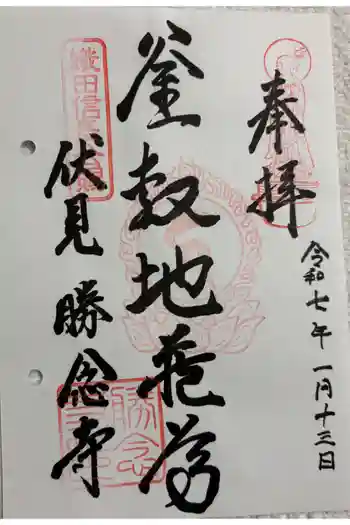 奉拝
令和七年 一月十三日
釜敷地蔵尊
伏見 勝念寺
織田信長
勝念